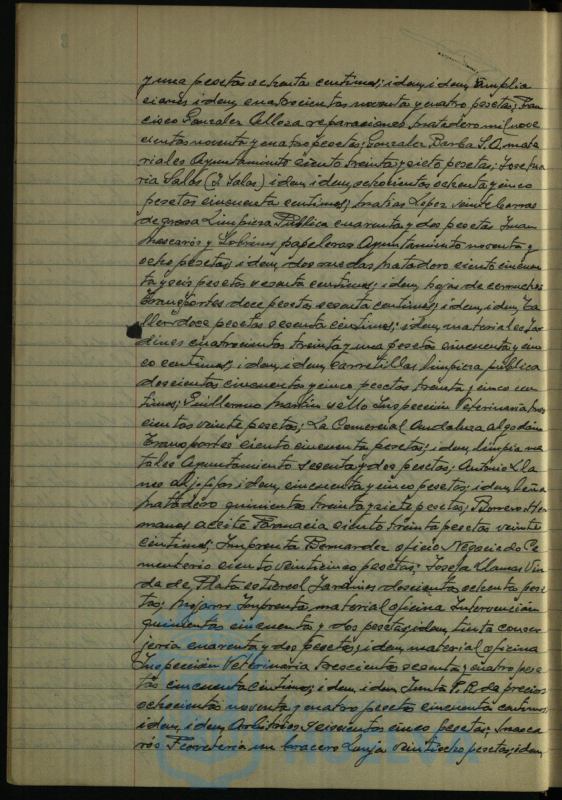 y una pesetas ochenta centimos; idem, idem, Amplia
ciones idem, cuatrocientas noventa y cuatro pesetas; Fran
cisco Gonzalez Cellosa reparaciones, Matadero mil nove
cientas noventa y cuatro pesetas; Gonzalez Barba S.A. mate
riales Ayuntamiento ciento treinta y siete pesetas; Jose Ma
ria Salas (J. Salas) idem, idem, ochocientas ochenta y cinco
pesetas cincuenta centimos; Matias Lopez veinte barras
de grasa Limpieza Pública cuarenta y dos pesetas Juan
Mascarós y Sobrinos papeleras Ayuntamiento noventa y
ocho pesetas; idem, dos ruedas Matadero ciento cincuen
ta y seis pesetas sesenta centimos; idem, hojas de
Transportes doce pesetas sesenta centimos; idem, idem, Ta
ller doce pesetas sesenta centimos; idem, materiales Jar
dines cuatrocientas treinta y una pesetas cincuenta y cin
co centimos; idem, idem, carretillas limpieza pública
doscientas cincuenta y cinco pesetas treinta y cinco cen
timos; Guillermo Martin sello Inspección Veterinaria tres
cientas veinte pesetas; La Comercial Andaluza algodón
Transportes ciento cincuenta pesetas; idem, limpia me
tales Ayuntamiento sesenta y dos pesetas; Antonio Lla
nes idem, cincuenta y cinco pesetas; idem, leña
Matadero quinientas treinta y siete pesetas; Borrero Her
manos aceite Farmacia ciento treinta pesetas veinte
centimos; Imprenta Bernardez oficio Negociado Ce
menterio ciento veinticinco pesetas; Josefa Llamas Viu
da de Plata estiercol Jardines doscientas ochenta pese
tas; Mojarro Imprenta material oficina Intervención
quinientas cincuenta y dos pesetas; idem, tinta conser
jeria cuarenta y dos pesetas; idem, material oficina
Inspección Veterinaria trescientas sesenta y cuatro pese
tas cincuenta centimos; idem, idem Junta P.R. de precios
ochocientas noventa y cuatro pesetas cincuenta centimos;
idem, idem, Arbitrios seiscientas cinco pesetas; Masca
rós Ferreteria un bracero Lonja veintiocho pesetas; idem,
HUELVA